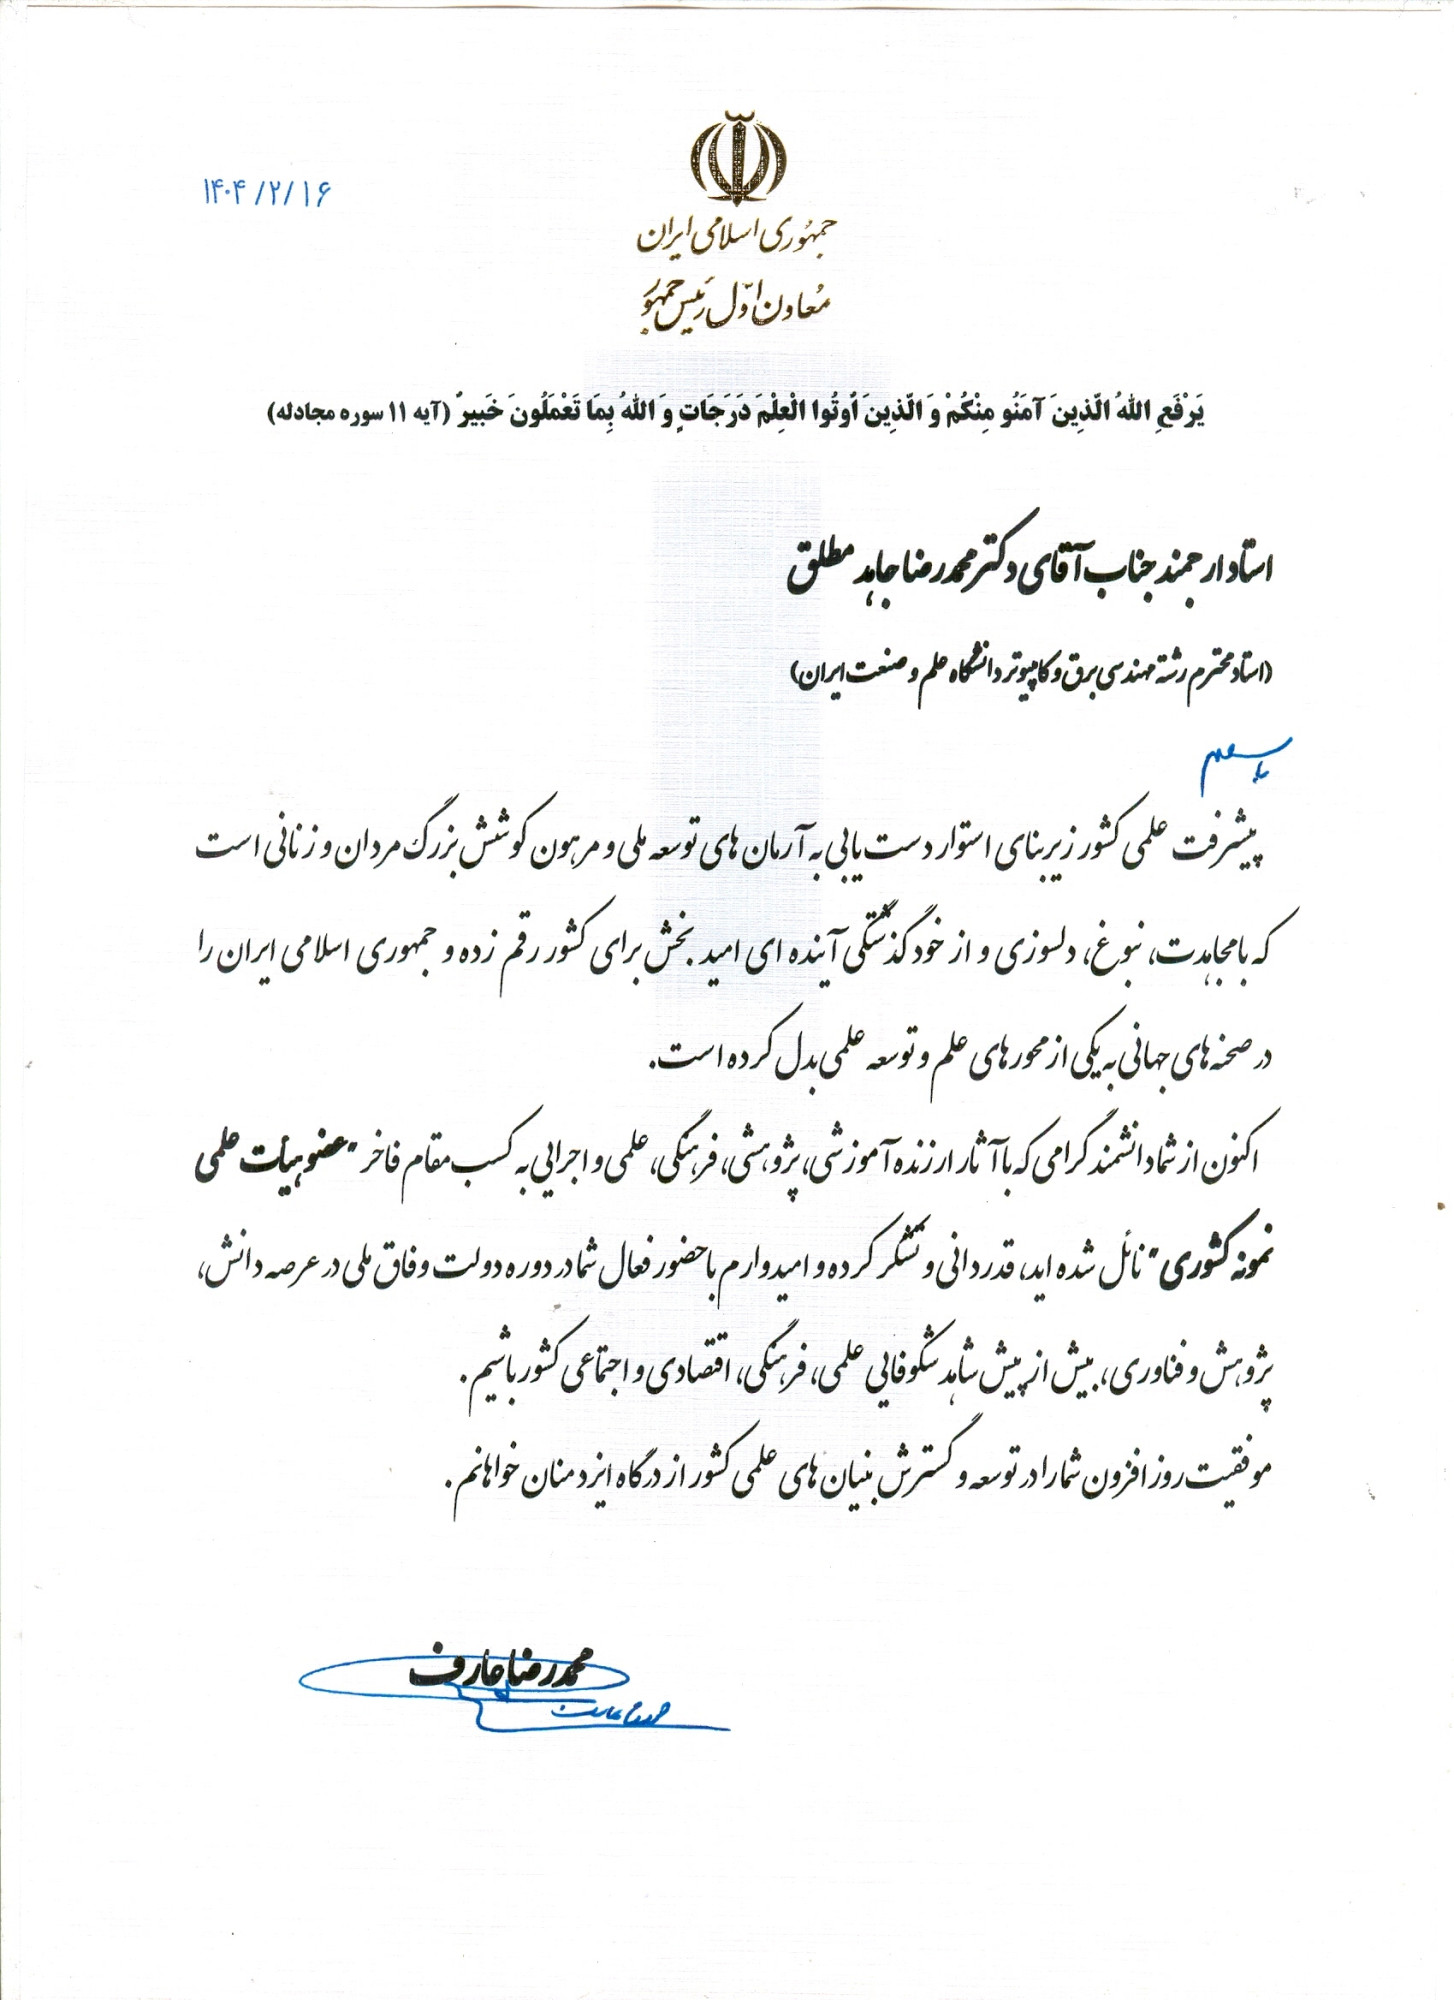 ۱۴۰۴/۲/۱۶
جمهوری اسلامی ایران
معاون اوّل رئیس جمهور
يَرْفَعِ اللهُ الّذِينَ آمَنُو مِنْكُمْ وَ الّذِينَ اُوتُوا الْعِلْمَ دَرَجَاتٍ وَ اللهُ بِمَا تَعْمَلُونَ خَبيرٌ (آیه ۱۱ سوره مجادله)
استاد ارجمند جناب آقای دکتر محمدرضا جاهد مطلق
(استاد محترم رشته مهندسی برق و کامپیوتر دانشگاه علم و صنعت ایران)
با سلام
پیشرفت علمی کشور زیربنای استوار دست یابی به آرمان های توسعه ملی و مرهون کوشش بزرگ مردان و زنانی است
که با مجاهدت، نبوغ، دلسوزی و از خود گذشتگی آینده ای امید بخش برای کشور رقم زده و جمهوری اسلامی ایران را
در صحنه های جهانی به یکی از محورهای علم و توسعه علمی بدل کرده است.
اکنون از شما دانشمند گرامی که با آثار ارزنده آموزشی، پژوهشی، فرهنگی، علمی و اجرایی به کسب مقام فاخر "عضو هیأت علمی
نمونه کشوری" نائل شده اید، قدردانی و تشکر کرده و امیدوارم با حضور فعال شما در دوره دولت وفاق ملی در عرصه دانش،
پژوهش و فناوری، بیش از پیش شاهد شکوفایی علمی، فرهنگی، اقتصادی و اجتماعی کشور باشیم.
موفقیت روزافزون شما را در توسعه و گسترش بنیان های علمی کشور از درگاه ایزد منان خواهانم.
محمدرضا عارف